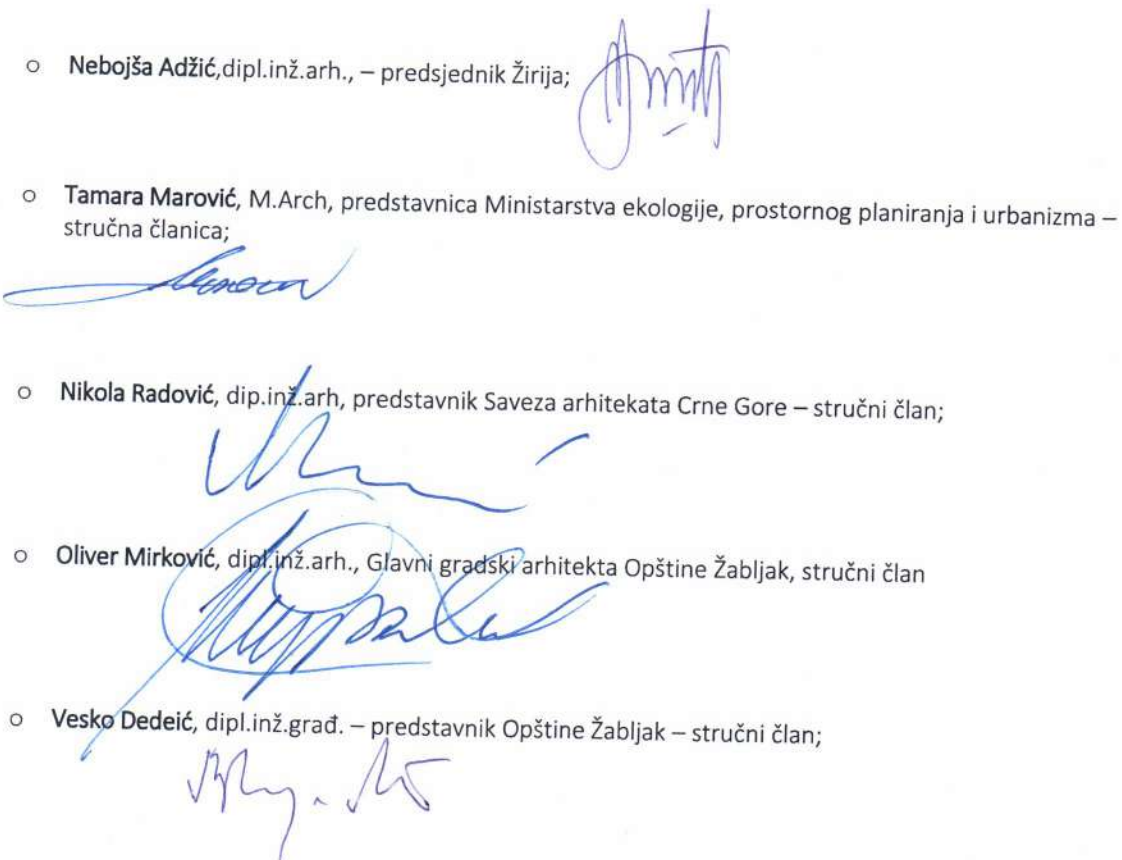 ○ Nebojša Adžić,dipl.inž.arh., – predsjednik Žirija;
○ Tamara Marović, M.Arch, predstavnica Ministarstva ekologije, prostornog planiranja i urbanizma –
stručna članica;
○ Nikola Radović, dip.inž.arh, predstavnik Saveza arhitekata Crne Gore – stručni član;
○ Oliver Mirković, dipl.inž.arh., Glavni gradski arhitekta Opštine Žabljak, stručni član
○ Vesko Dedeić, dipl.inž.građ. – predstavnik Opštine Žabljak – stručni član;